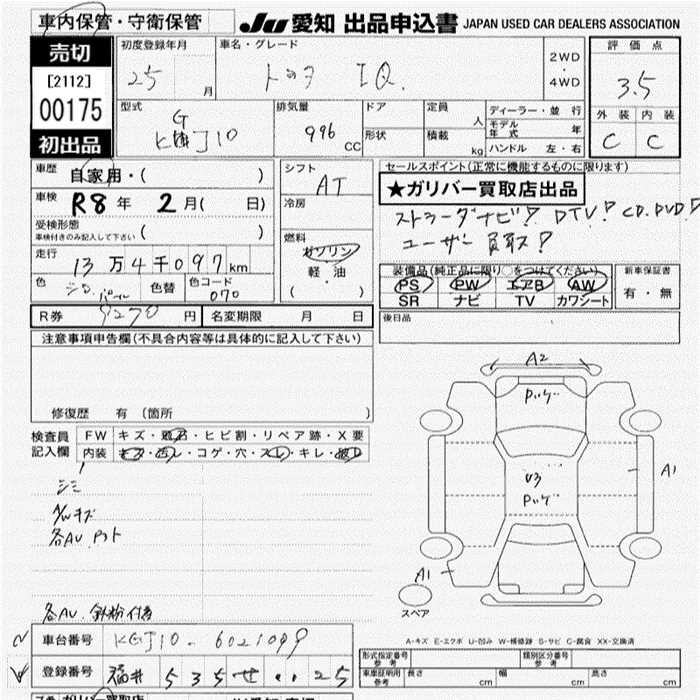 車内保管・守衛保管
JU 愛知 出品申込書 JAPAN USED CAR DEALERS ASSOCIATION
売切
[2112]
00175
初出品
初度登録年月
25 月
車名・グレード
トヨタ IQ
2WD
・
4WD
評価点
3.5
外装 内装
C C
型式
排気量
996 cc
ドア
形状
定員 人
積載 kg
ディーラー・並行
モデル年式 年
ハンドル 左・右
車歴
自家用・( )
車検
R8年 2月( 日)
受検形態
車検付きのみ記入して下さい ( )
走行
13万4千097km
色
色替
色コード
070
シフト
AT
冷房
燃料
ガソリン
軽・油
( )
セールスポイント(正常に機能するものに限ります)
★ガリバー買取店出品
DTV! CD.DVD!
ユーザー買取!
装備品(純正品に限り○をつけてください)
PS PW エアB AW
SR ナビ TV カワシート
新車保証書
有・無
R券 9270円
名変期限 月 日
後日品
注意事項申告欄(不具合内容等は具体的に記入して下さい)
修復歴 有 〔箇所 〕
検査員
記入欄
FW キズ・飛石・ヒビ割・リペア跡・X要
内装 キズ・汚レ・コゲ・穴・スレ・キレ・破レ
シミ
A/Wキズ
各AU 鉄粉付着
A2
A1
A1
スペア
A-キズ E-エクボ U-凹み W-補修跡 S-サビ C-腐食 XX-交換済
車台番号 KGJ10-6021099
登録番号 福井 535 せ ・・25
形式指定番号
参考
類別区分番号
参考
車庫証明用
参考
長さ cm
幅 cm
高さ cm